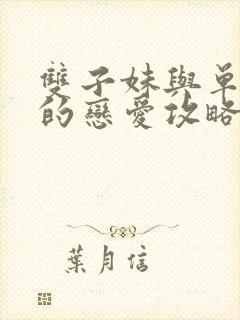 雙子妹與單
的戀愛攻略
葉月信